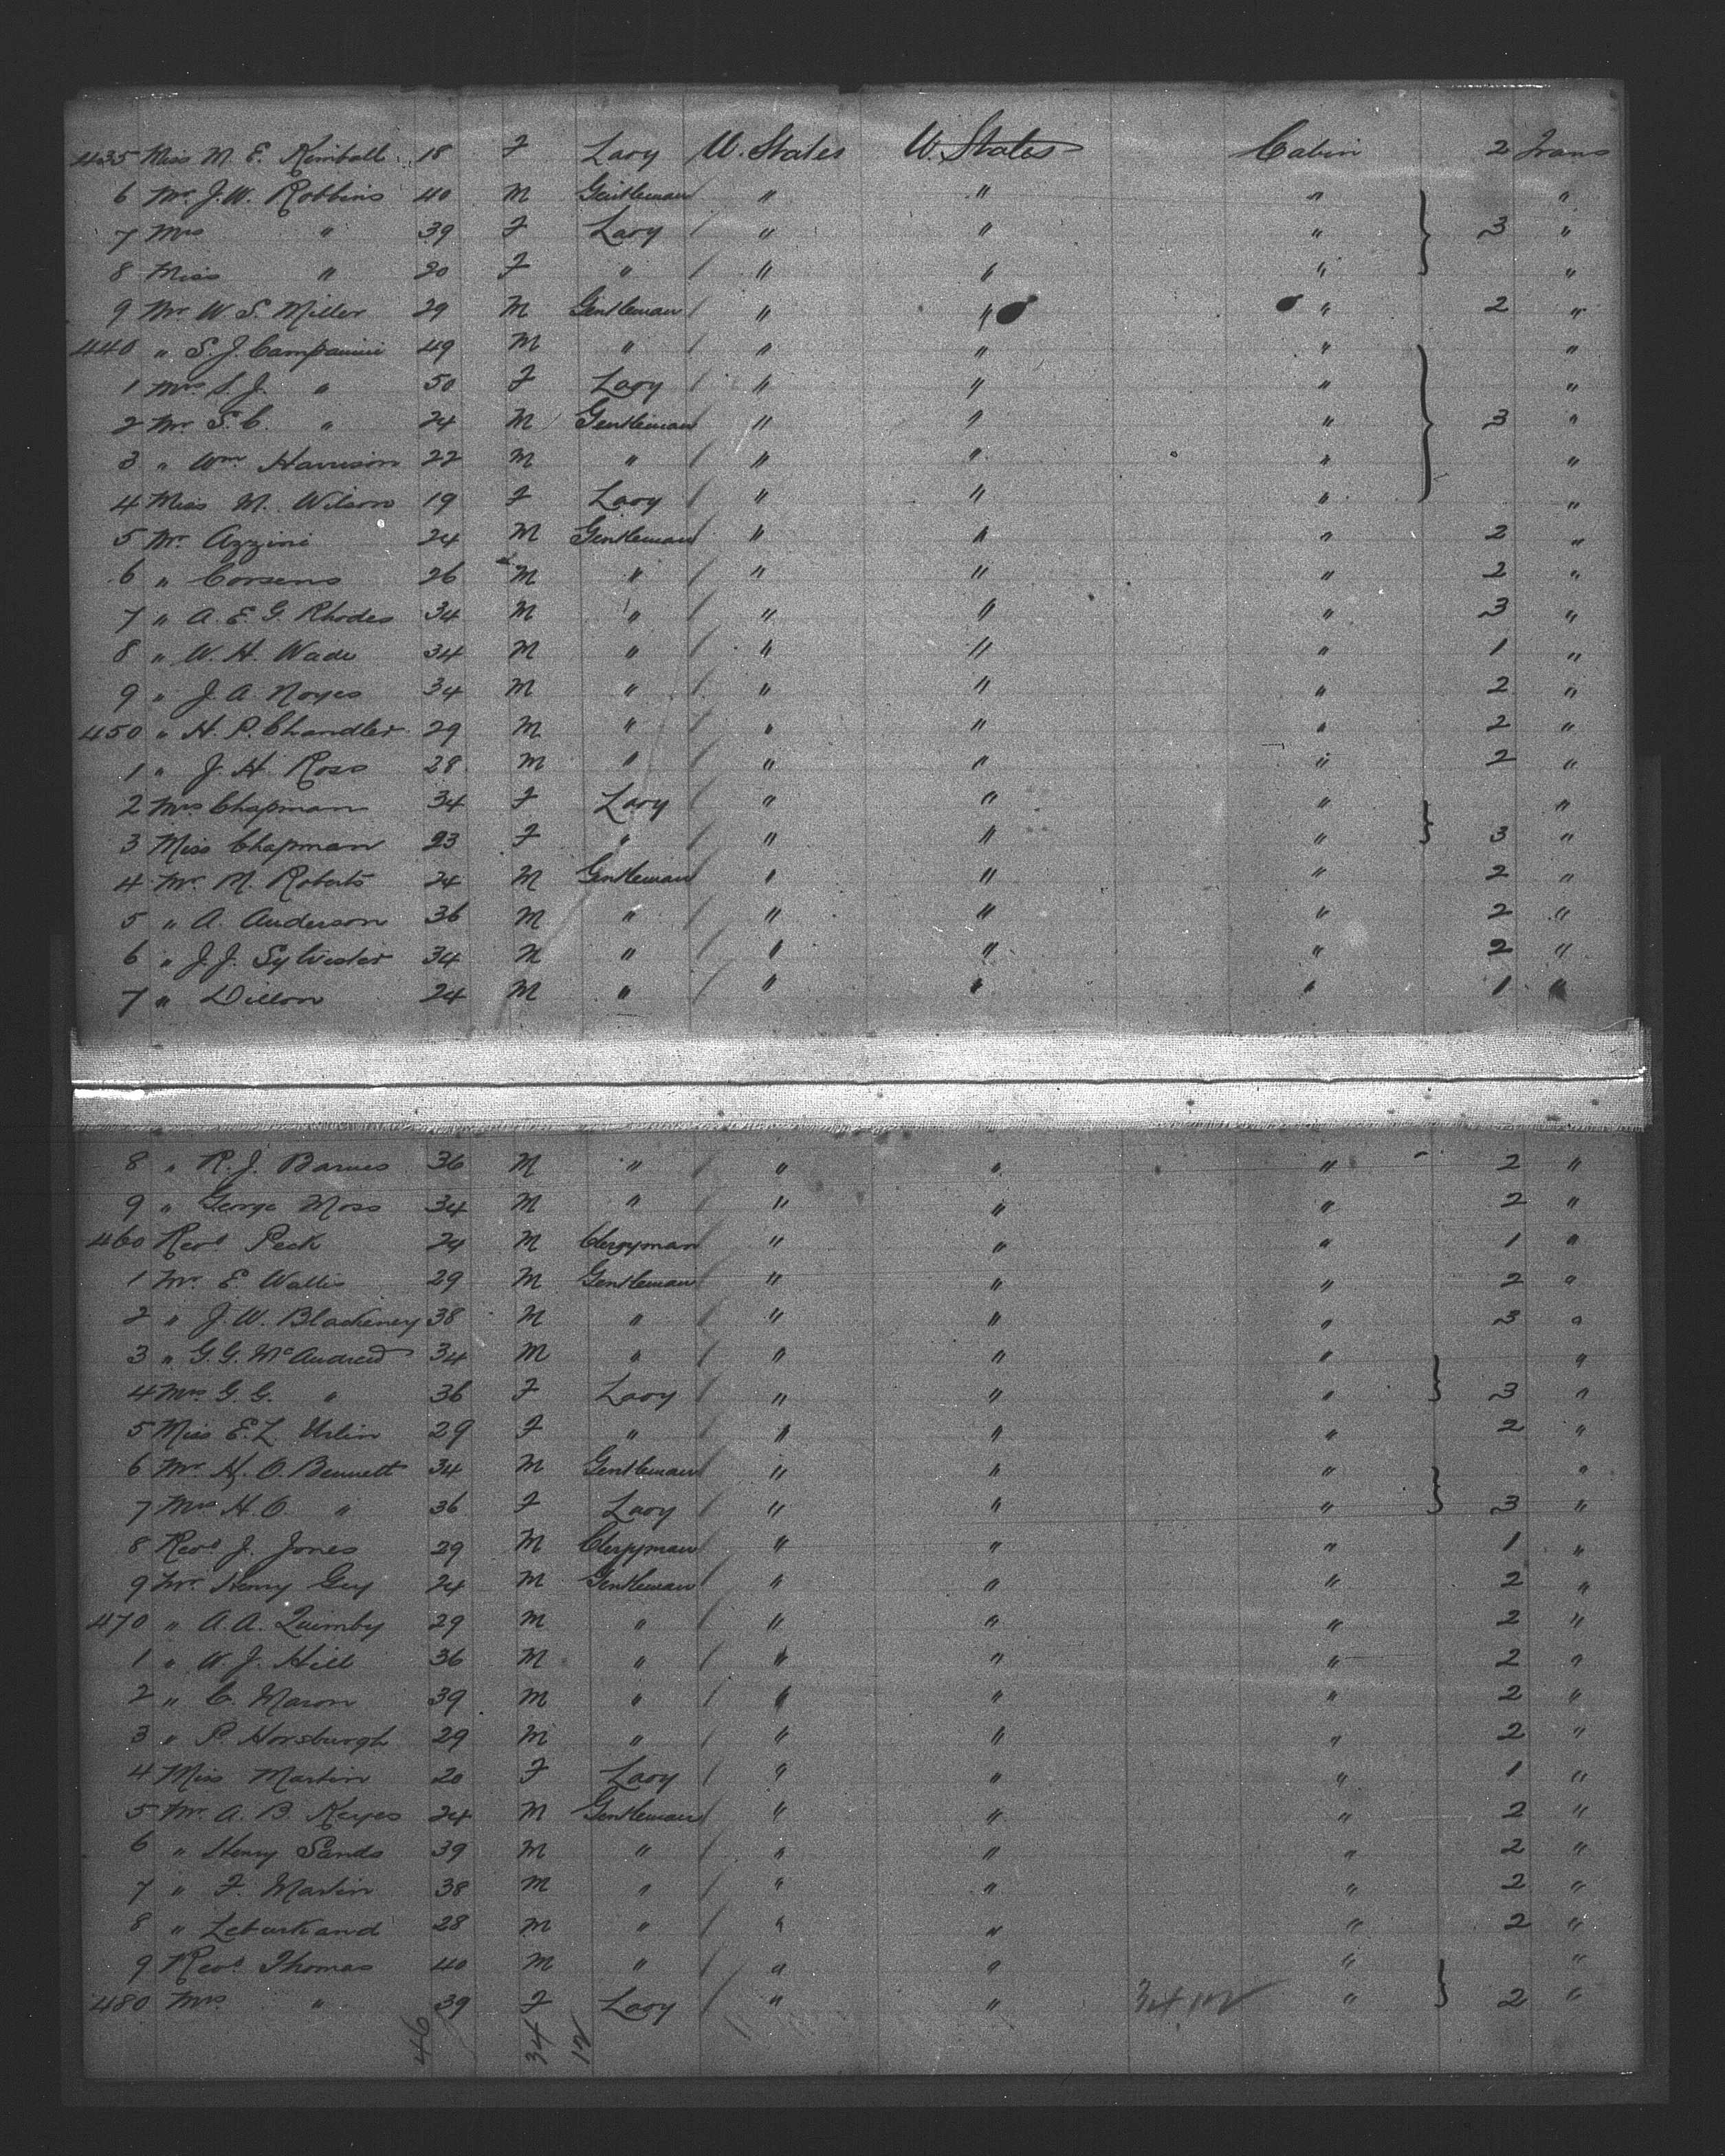 435 Miss M. E. Kimball 18 F Lady U. States U. States Cabin 2 Trans
6 Mr. J. W. Robbins 40 M Gentleman / " " " "
7 Mrs " 39 F Lady / " " " 3 "
8 Miss " 20 F " / " " " "
9 Mr W. S. Miller 29 M Gentleman / " " " 2 "
440 " S. J. Campanini 49 M " / " " " "
1 Mrs S. J. " 50 F Lady / " " " "
2 Mr S. C. " 24 M Gentleman / " " " 3 "
3 " Wm. Harrison 22 M " / " " " "
4 Miss M. Wilson 19 F Lady / " " " "
5 Mr. Azzini 24 M Gentleman " " " 2 "
6 " Corsens 26 M " / " " " 2 "
7 " A. E. G. Rhodes 34 M " / " " " 3 "
8 " W. H. Wade 34 M " / " " " 1 "
9 " J. A. Noyes 34 M " / " " " 2 "
450 " H. P. Chandler 29 M " / " " " 2 "
1 " J. H. Ross 28 M " / " " " 2 "
2 Mrs Chapman 34 F Lady / " " " "
3 Miss Chapman 23 F " / " " " 3 "
4 Mr. M. Roberts 24 M Gentleman / " " " 2 "
5 " A. Anderson 36 M " / " " " 2 "
6 " J. J. Sylvester 34 M " / " " " 2 "
7 " Dillon 24 M " / " " " 1 "
8 " R. J. Barnes 36 M " / " " " 2 "
9 " George Moss 34 M " / " " " 2 "
460 Revd Peck 24 M Clergyman " " " 1 "
1 Mr. E. Wallis 29 M Gentleman / " " " 2 "
2 " J. W. Blackeney 38 M " / " " " 3 "
3 " G. G. McAndrew 34 M " / " " " "
4 Mrs G. G. " 36 F Lady / " " " 3 "
5 Miss E. L. 29 F " / " " " 2 "
6 Mr. H. O. Bennett 34 M Gentleman / " " " "
7 Mrs H. O. " 36 F Lady / " " " 3 "
8 Revd J. Jones 39 M Clergyman / " " " 1 "
9 Mr. Henry Guy 24 M Gentleman / " " " 2 "
470 " A. A. Quimby 29 M " / " " " 2 "
1 " W. J. Hill 36 M " / " " " 2 "
2 " C. Mason 39 M " / " " " 2 "
3 " P. Horsburgh 29 M " / " " " 2 "
4 Miss Martin 20 F Lady / " " " 1 "
5 Mr. A. B. Keyes 24 M Gentleman / " " " 2 "
6 " Henry Sands 39 M " / " " " 2 "
7 " F. Martin 38 M " / " " " 2 "
8 " 28 M " / " " " 2 "
9 Revd. Thomas 40 M " / " " " "
480 Mrs " 39 F Lady / " " " 2 "
46 34 12